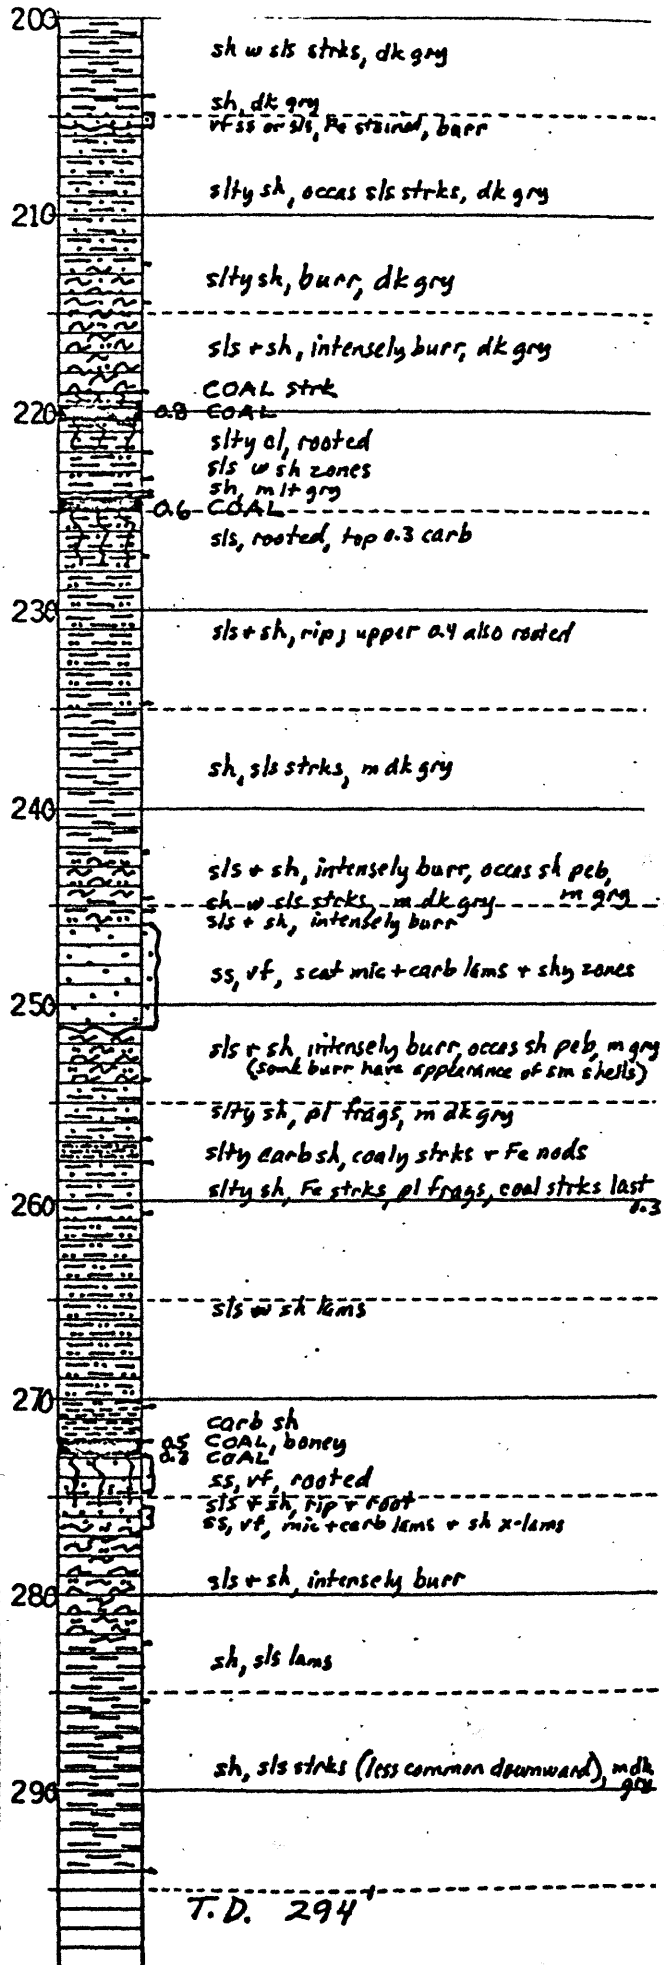 200
sh w sls strks, dk gry
sh, dk gry
vf ss or sls, Fe stained, burr
slty sh, occas sls strks, dk gry
210
slty sh, burr, dk gry
sls + sh, intensely burr, dk gry
COAL strk
220 0.8 COAL
slty cl, rooted
sls w sh zones
sh, m lt gry
0.6 COAL
sls, rooted, top 0.3 carb
230
sls + sh, rip; upper 0.4 also rooted
sh, sls strks, m dk gry
240
sls + sh, intensely burr, occas sh peb,
m gry
sh w sls strks, m dk gry
sls + sh, intensely burr
ss, vf, scat mic + carb lams + shy zones
250
sls + sh, intensely burr, occas sh peb, m gry
(some burr have appearance of sm shells)
slty sh, pl frags, m dk gry
slty carb sh, coaly strks + Fe nods
slty sh, Fe strks, pl frags, coal strks last
260 0.3
sls w sh lams
270
carb sh
0.5 COAL, boney
COAL
ss, vf, rooted
sls + sh, rip + root
ss, vf, mic + carb lams + sh x-lams
280
sls + sh, intensely burr
sh, sls lams
sh, sls strks (less common downward), m dk
290 gry
T.D. 294'